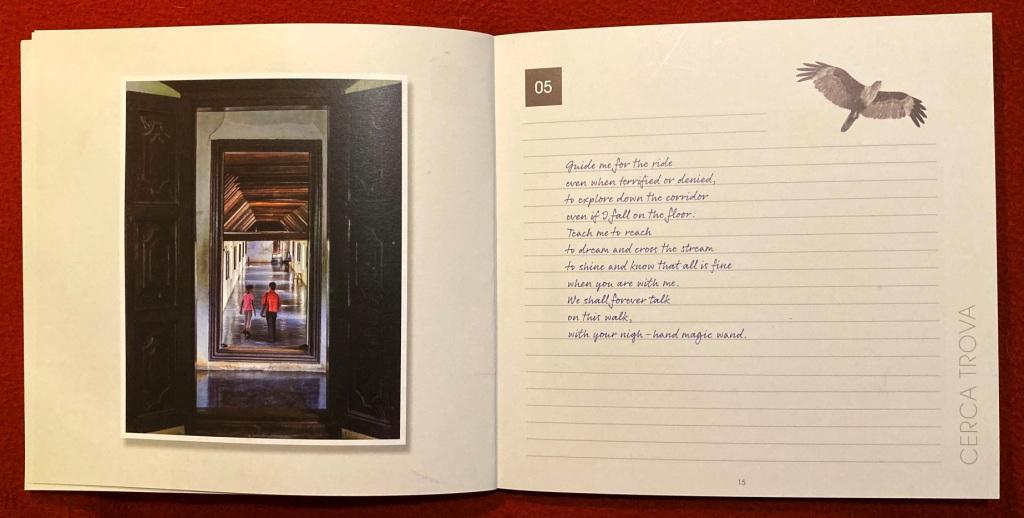 05
Guide me for the ride
even when terrified or denied,
to explore down the corridor
even if I fall on the floor.
Teach me to reach
to dream and cross the stream
to shine and know that all is fine
when you are with me.
We shall forever talk
on this walk,
with your nigh-hand magic wand.
CERCA TROVA
15